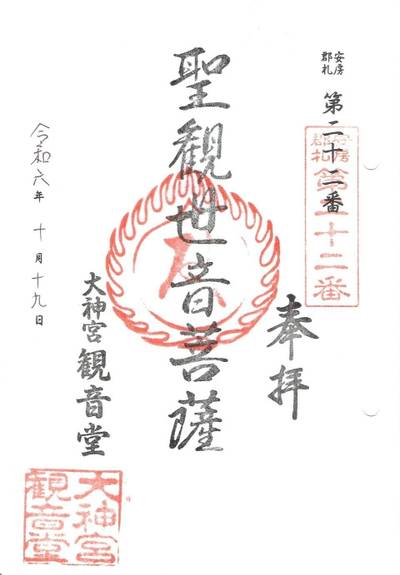 安房
郡札
第二十二番
安房
郡札
第二十二番
奉拝
聖観世音菩薩
大神宮観音堂
令和六年 十月十九日
大神宮
観音堂